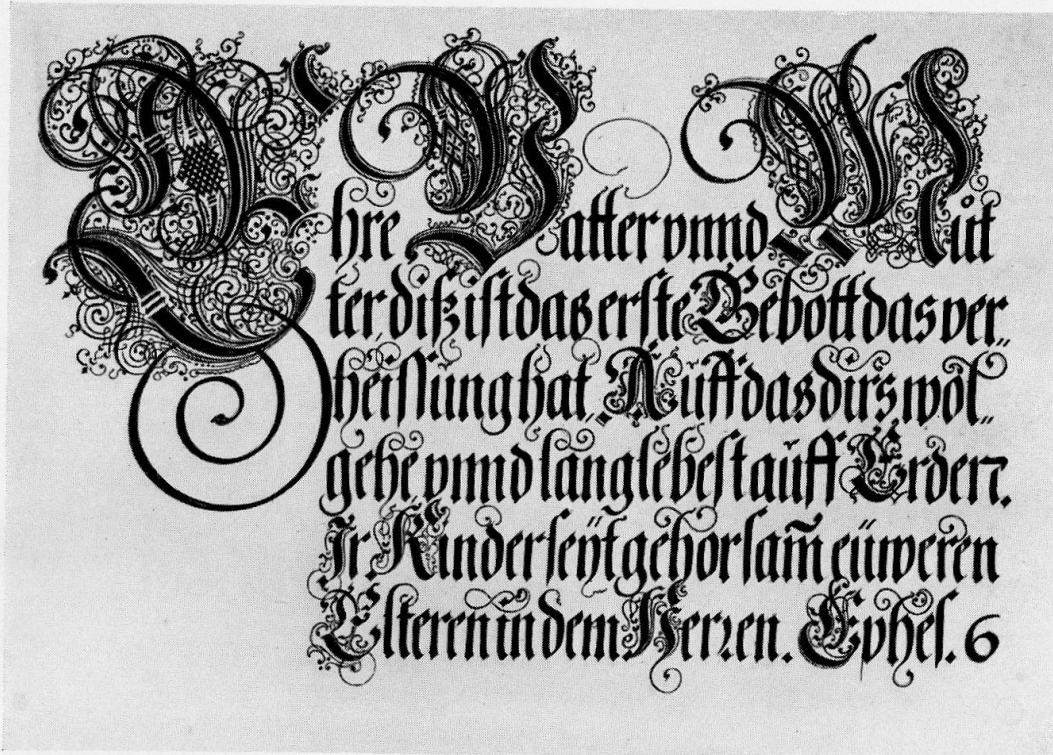 Ehre Vatter vnnd Můt
ter, diſz iſt das erſte Gebott das ver„
heiſſung hat, Aŭff das dirs wol„
gehe vnnd lang lebeſt aŭff Erden.
Ir. Kinder ſeÿt gehorſam̄ eüweren
Elteren in dem Herꝛen. Epheſ. 6